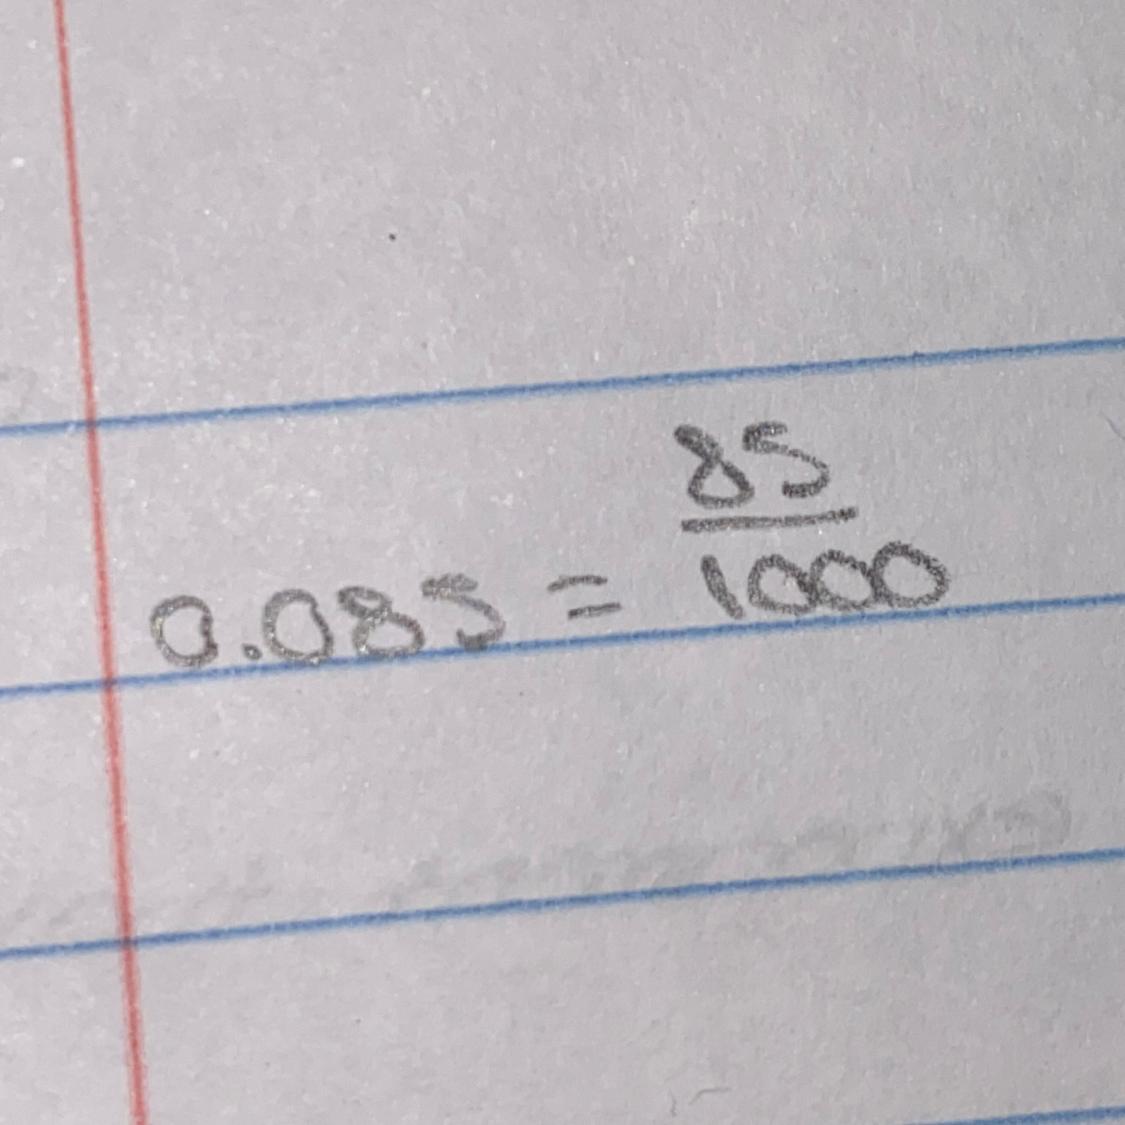 0.085 = 85/1000